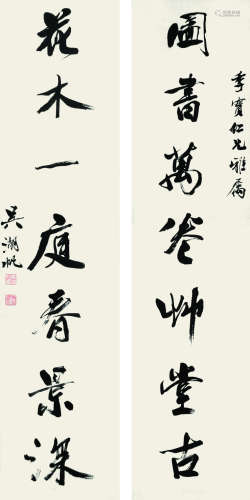 圖書萬卷艸堂古
季寶仁兄雅屬
花木一庭春景深
吳湖帆